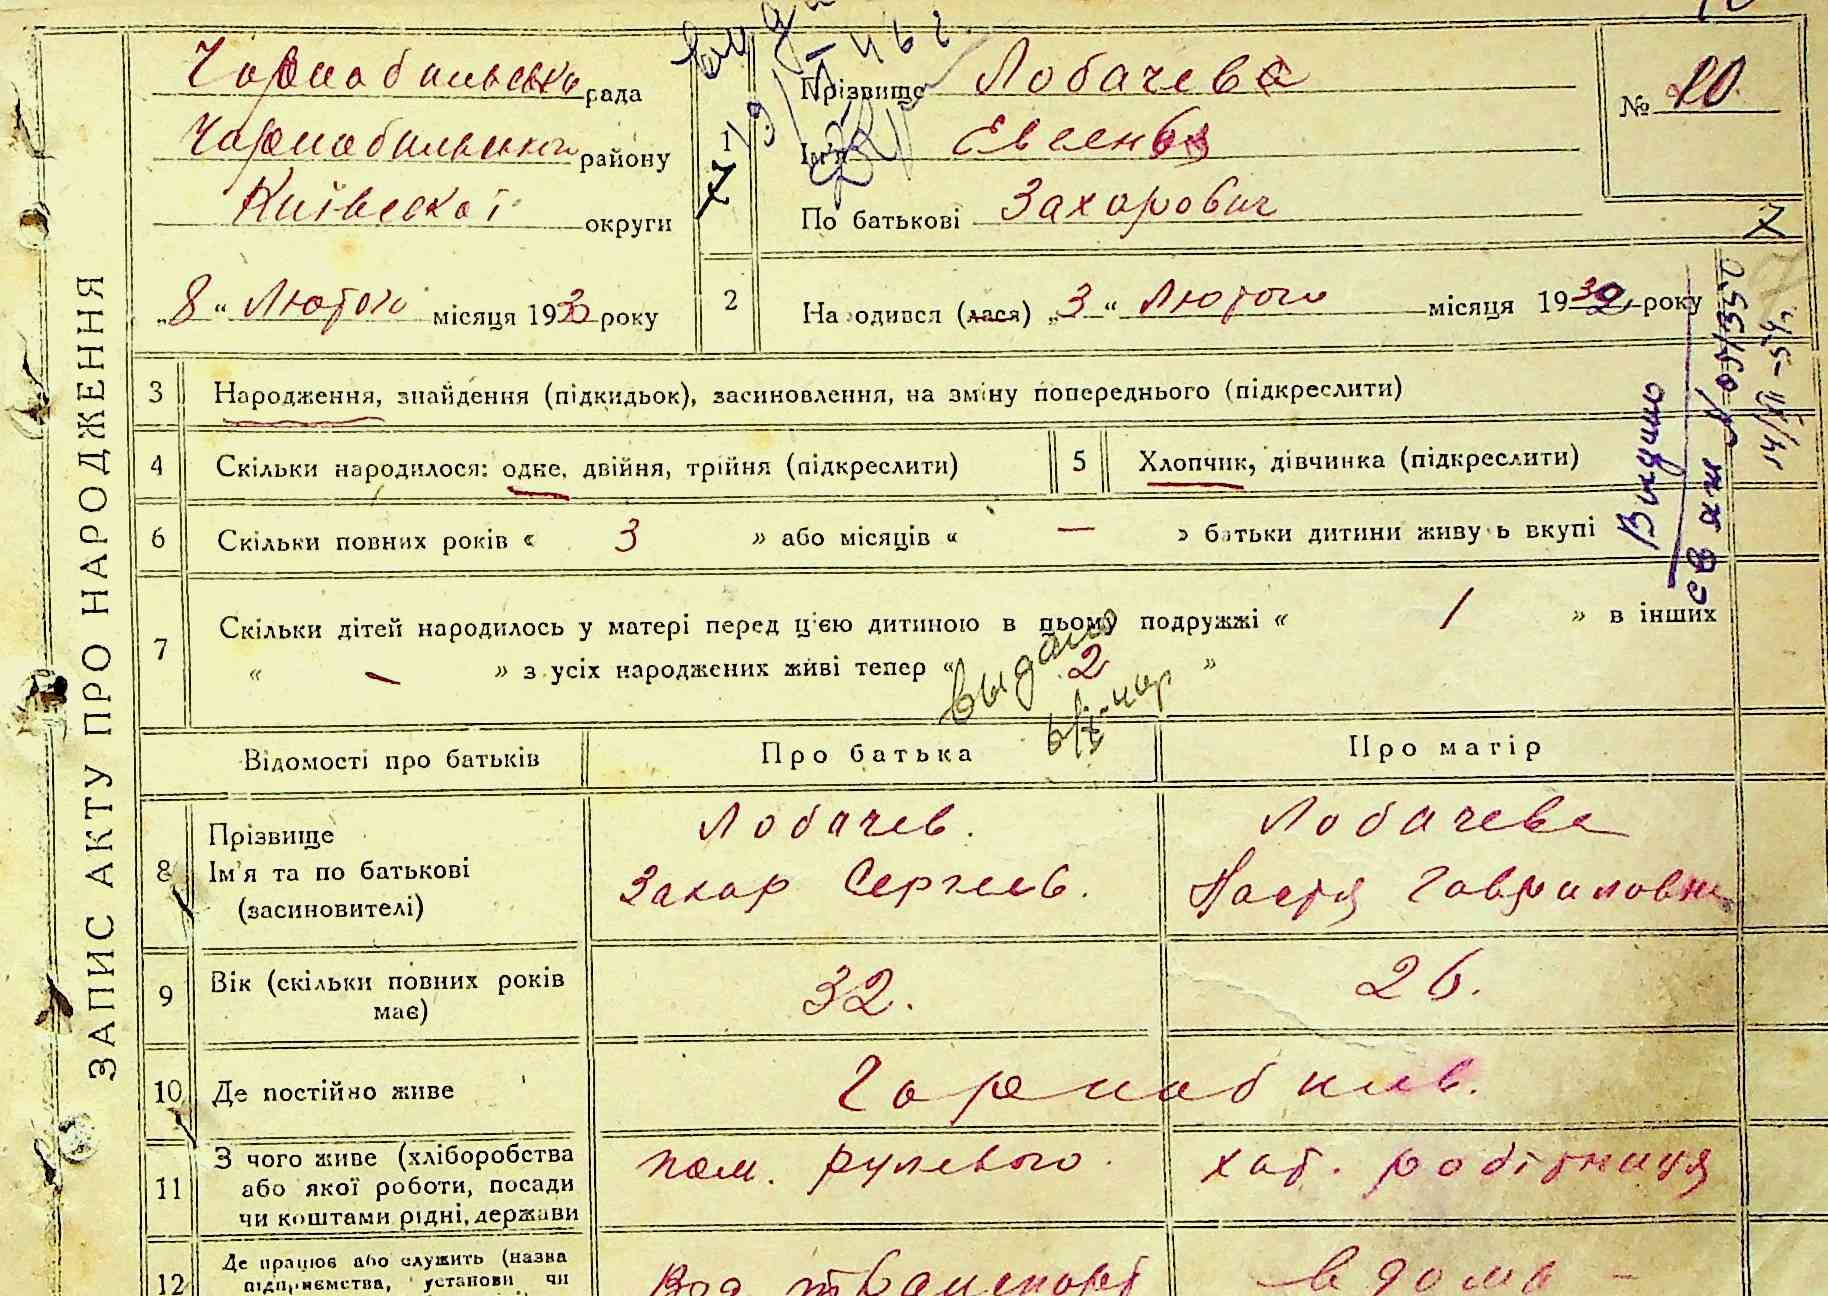 ЗАПИС АКТУ ПРО НАРОДЖЕННЯ
Чорнобильська рада
Чорнобильського району
Київської округи
„8“ Лютого місяця 1930 року
1
Прізвище Лобачев
Ім'я Евгений
По батькові Захарович
№ 20
7
2
Народився (лася) „3“ Лютого місяця 1930 року
3 Народження, знайдення (підкидьок), засиновлення, на зміну попереднього (підкреслити)
4 Скільки народилося: одне, двійня, трійня (підкреслити)
5 Хлопчик, дівчинка (підкреслити)
6 Скільки повних років « 3 » або місяців « — » батьки дитини живуть вкупі
7 Скільки дітей народилось у матері перед цією дитиною в цьому подружжі « 1 » в інших
« — » з усіх народжених живі тепер « 2 »
выдано
Видано
Відомості про батьків Про батька Про матір
8 Прізвище
Ім'я та по батькові
(засиновителі)
Лобачев.
Захар Сергеев.
Лобачева
Настя Гавриловна
9 Вік (скільки повних років має) 32. 26.
10 Де постійно живе Чорнобиль.
11 З чого живе (хліборобства
або якої роботи, посади
чи коштами рідні, держави
пом. рулевого.
хат. робітниця
12 Де працює або служить (назва
підприємства, установи чи
Вод транспорт
вдома –